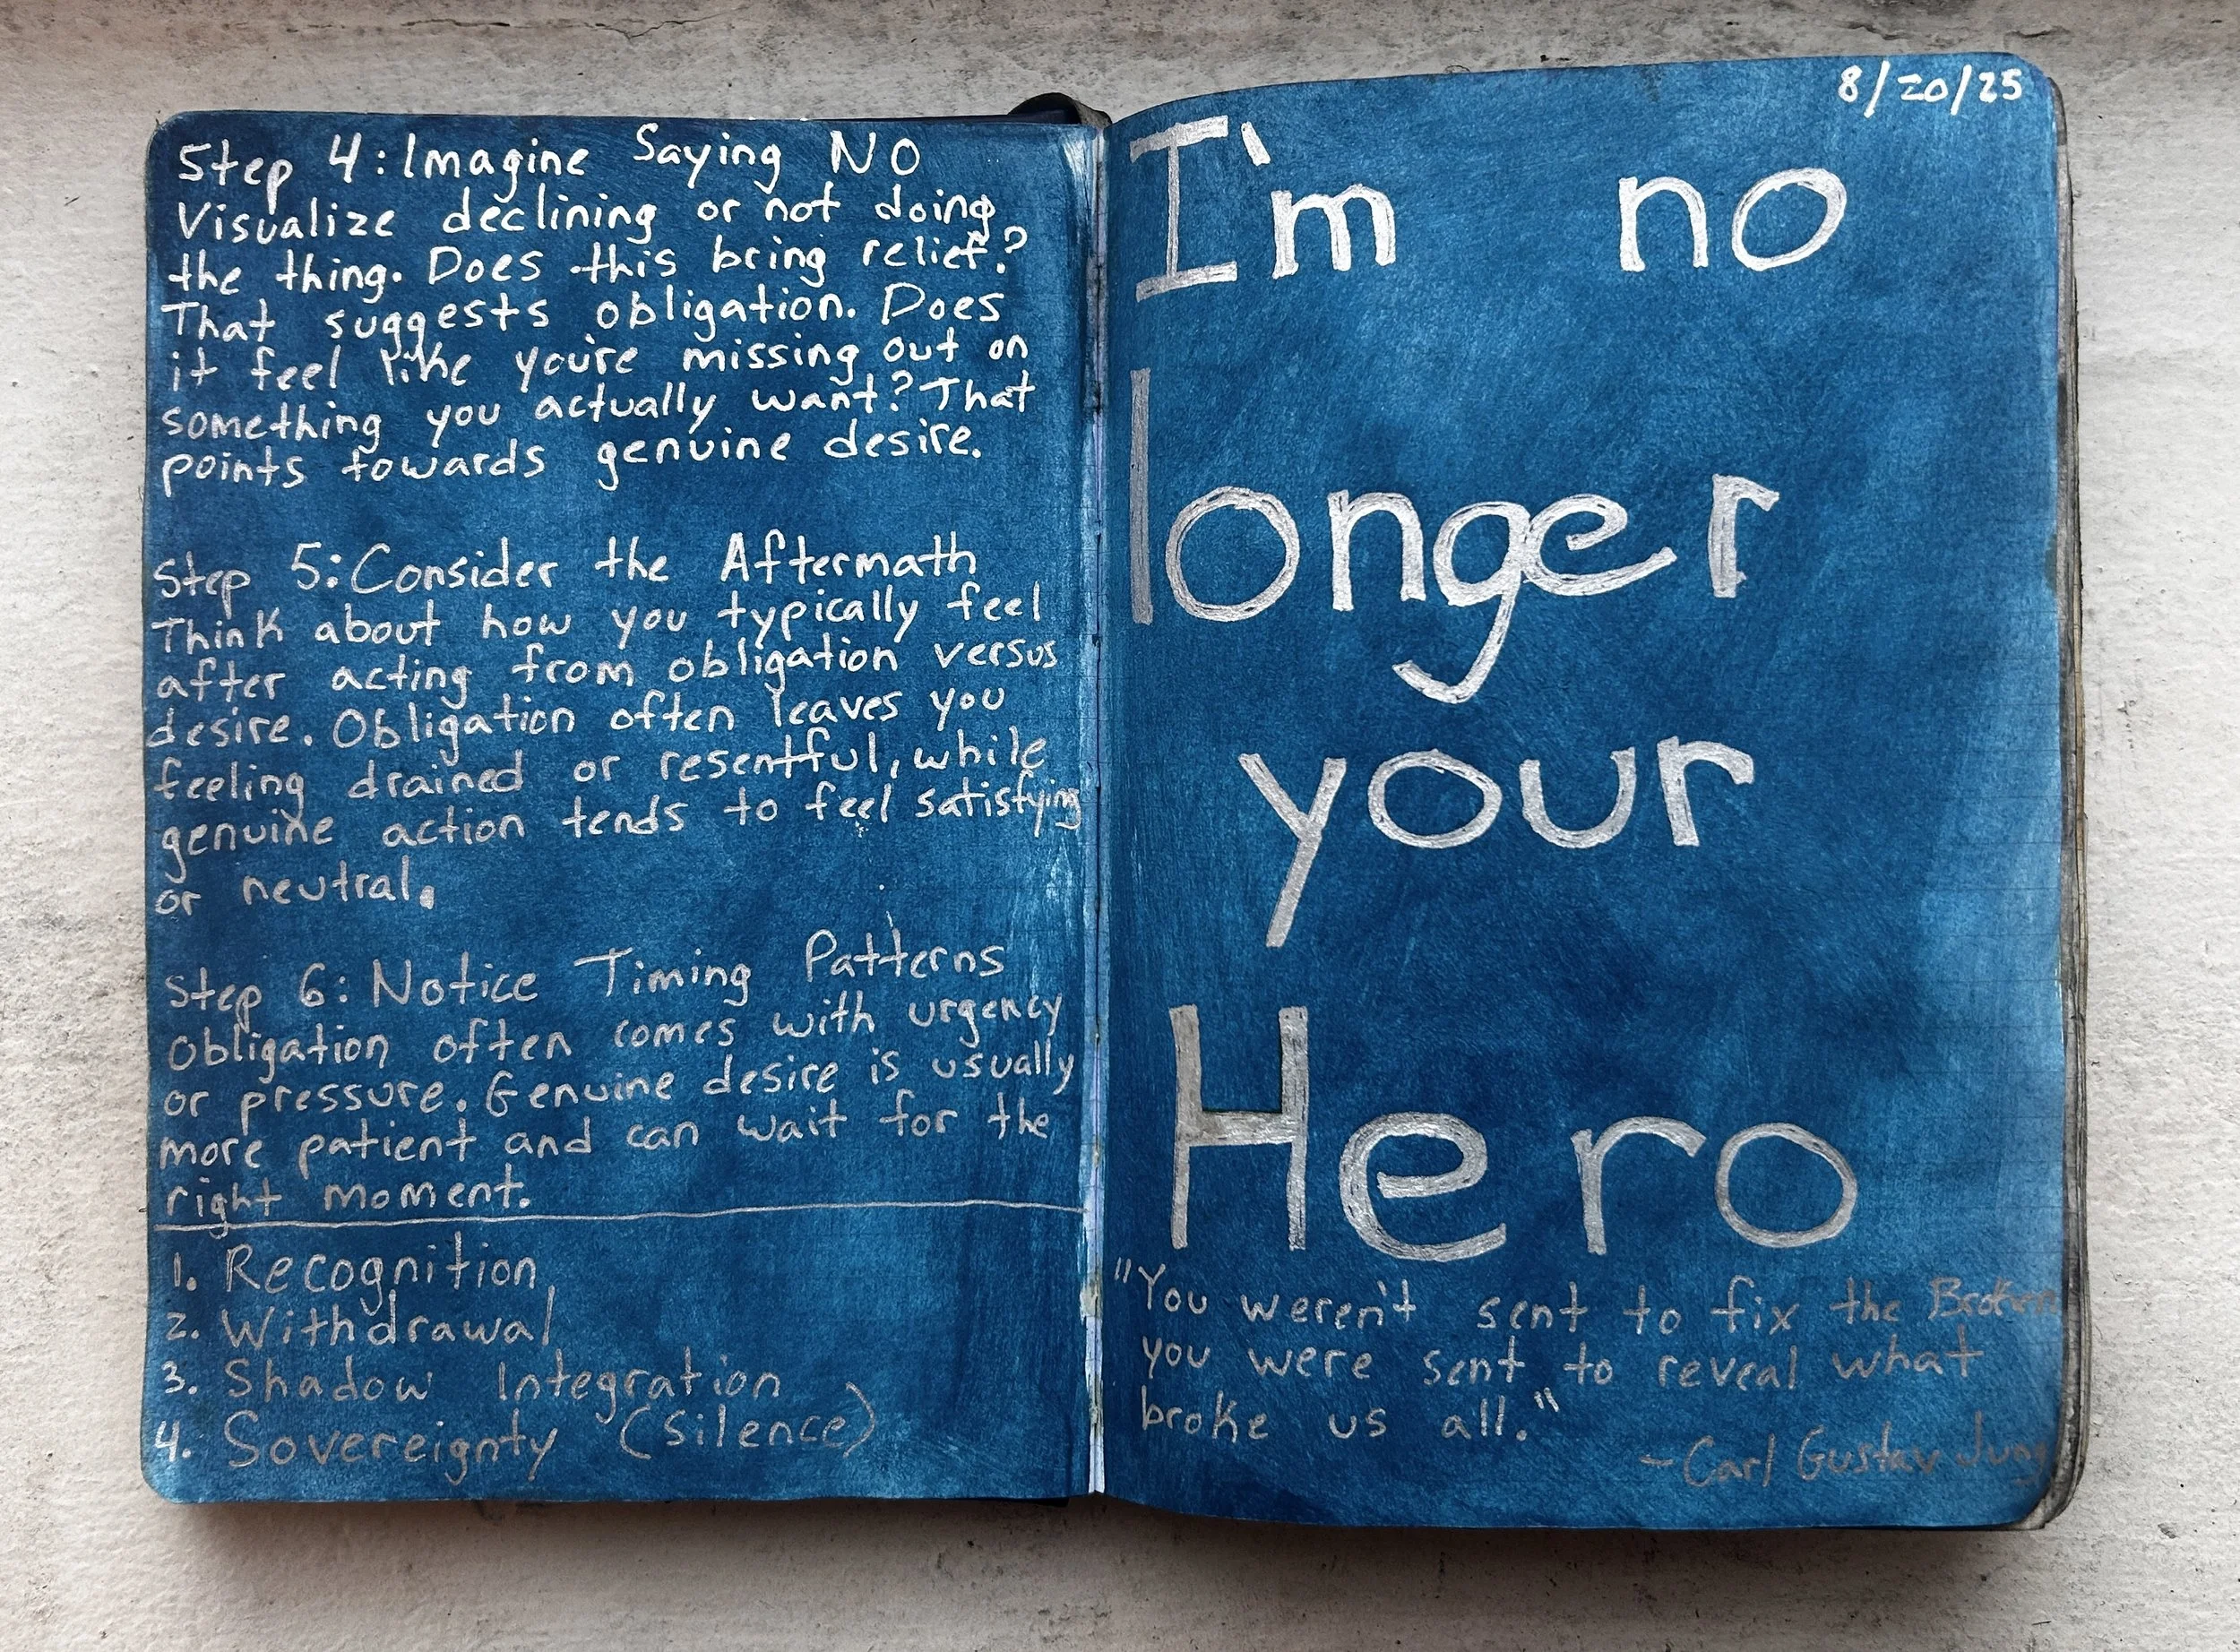 Step 4: Imagine Saying NO
Visualize declining or not doing
the thing. Does this bring relief?
That suggests obligation. Does
it feel like you're missing out on
something you actually want? That
points towards genuine desire.
Step 5: Consider the Aftermath
Think about how you typically feel
after acting from obligation versus
desire. Obligation often leaves you
feeling drained or resentful, while
genuine action tends to feel satisfying
or neutral.
Step 6: Notice Timing Patterns
Obligation often comes with urgency
or pressure. Genuine desire is usually
more patient and can wait for the
right moment.
1. Recognition
2. Withdrawal
3. Shadow Integration
4. Sovereignty (Silence)
8/20/25
I'm no
longer
your
Hero
"You weren't sent to fix the Broken
you were sent to reveal what
broke us all."
- Carl Gustav Jung